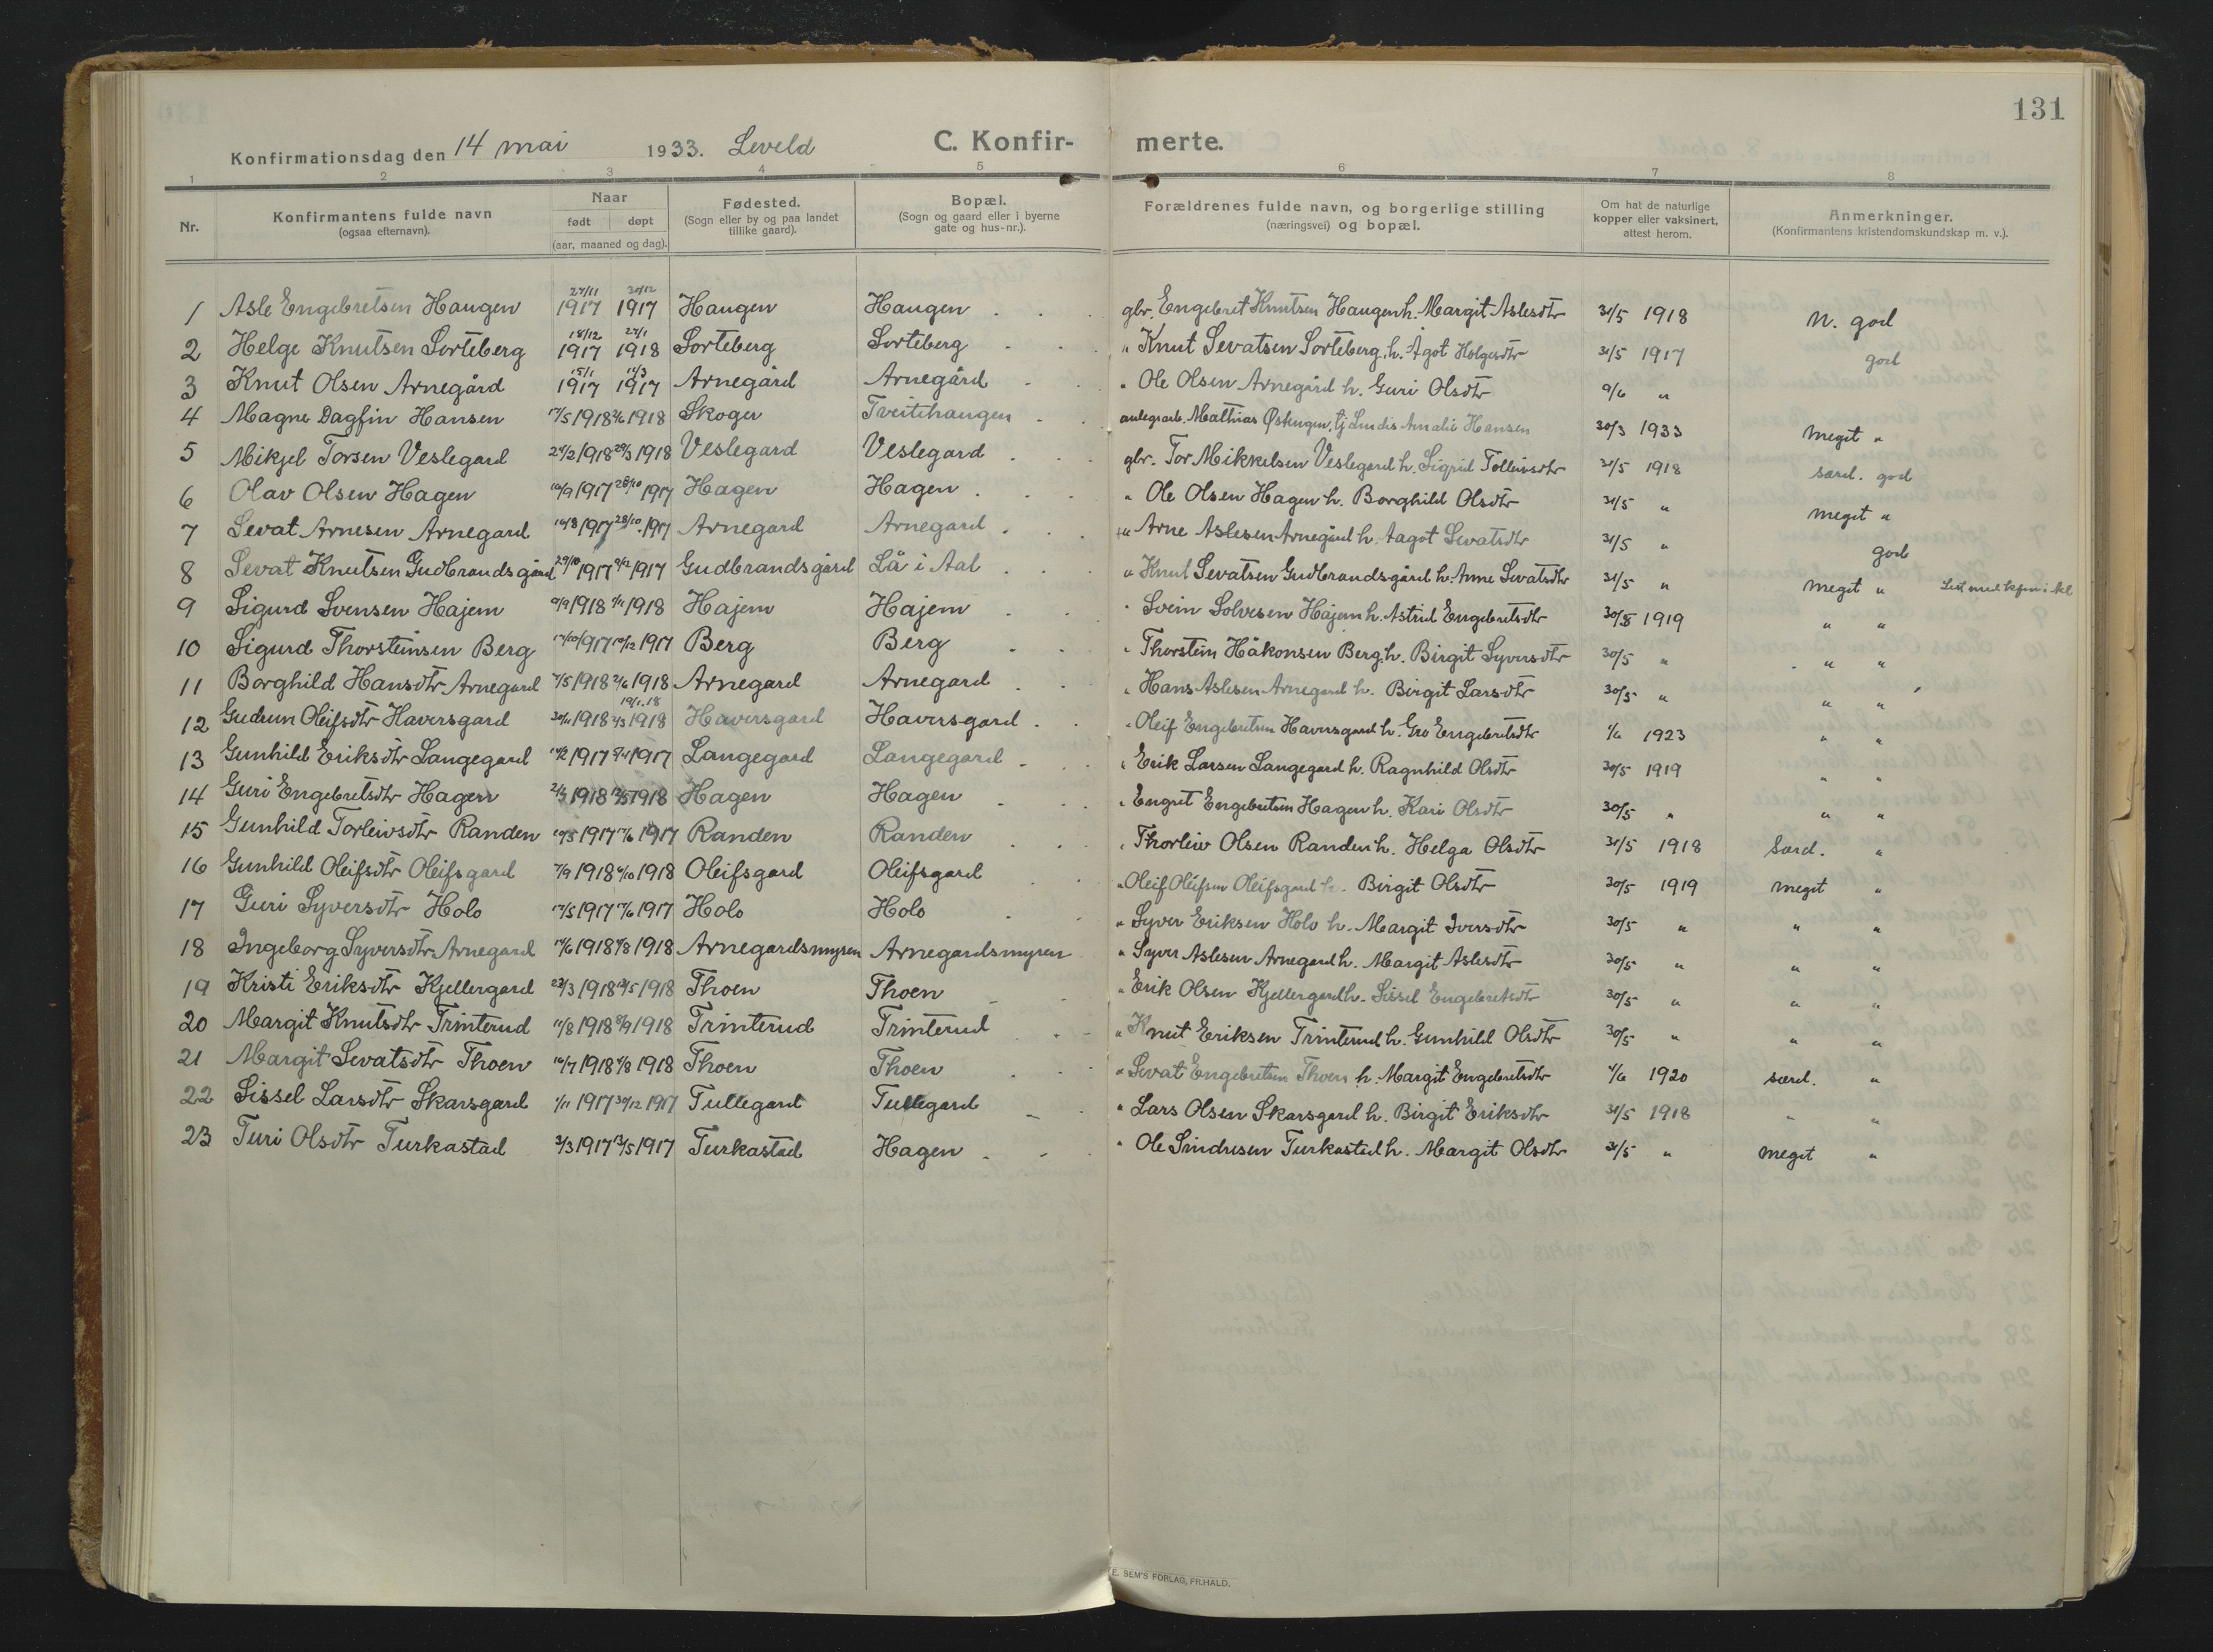 131
Konfirmationsdag den 14 mai 1933. Leveld C. Konfir- merte.
1 2 3 4 5 6 7 8
Nr. Konfirmantens fulde navn (ogsaa efternavn). Naar født døpt (aar, maaned og dag). Fødested. (Sogn eller by og paa landet tillike gaard). Bopæl. (Sogn og gaard eller i byerne gate og hus-nr.). Forældrenes fulde navn, og borgerlige stilling (næringsvei) og bopæl. Om hat de naturlige kopper eller vaksinert, attest herom. Anmerkninger. (Konfirmantens kristendomskundskap m. v.).
1 Asle Engebretsen Haugen 1917 1917 Haugen Haugen gbr. Engebret Knutsen Haugen h. Margit Aslesdtr 31/5 1918 M. god
2 Helge Knutsen Sorteberg 18/12 1917 27/1 1918 Sorteberg Sorteberg " Knut Sevatsen Sorteberg h. Ågot Helgesdtr 31/5 1917 god
3 Knut Olsen Arnegård 15/1 1917 1917 Arnegård Arnegård " Ole Olsen Arnegård h. Guri Olsdtr 9/6 "
4 Magne Dagfin Hansen 1918 1918 Skoger Tveitehaugen Mathias Østengen, Amalie Hansen 30/3 1933 Meget "
5 Mikjel Torsen Veslegard 1918 1918 Veslegard Veslegard gbr. Tor Mikkelsen Veslegard h. Sigrid Tolleivsdtr 31/5 1918 særd. god
6 Olav Olsen Hagen 1917 28/10 1917 Hagen Hagen " Ole Olsen Hagen h. Borghild Olsdtr 31/5 " Meget "
7 Sevat Arnesen Arnegard 1917 28/10 1917 Arnegard Arnegard " Arne Aslesen Arnegård h. Aagot Sevatsdtr 31/5 " god
8 Sevat Knutsen Gudbrandsgård 29/10 1917 1917 Gudbrandsgård Lå i Aal " Knut Sevatsen Gudbrandsgård h. Anne Sevatsdtr 31/5 " Meget "
9 Sigurd Svensen Hajem 1918 1918 Hajem Hajem " Svein Solvesen Hajem h. Astrid Engebretsdtr 30/5 1919 " "
10 Sigurd Thorsteinsen Berg 1917 1917 Berg Berg " Thorstein Håkonsen Berg h. Birgit Syversdtr 30/5 " " "
11 Borghild Hansdtr Arnegard 1918 1918 Arnegard Arnegard " Hans Aslesen Arnegard h. Birgit Larsdtr 30/5 " " "
12 Gudrun Oleifsdtr Haversgard 1918 1918 Haversgard Haversgard " Oleif Engebretsen Haversgard h. Gro Engebretsdtr 1923 " "
13 Gunhild Eriksdtr Langegard 1917 1917 Langegard Langegard " Erik Larsen Langegard h. Ragnhild Olsdtr 30/5 1919 " "
14 Guri Engebretsdtr Hagen 1918 1918 Hagen Hagen " Engret Engebretsen Hagen h. Kari Olsdtr 30/5 " " "
15 Gunhild Torleivsdtr Randen 1917 1917 Randen Randen " Thorleiv Olsen Randen h. Helga Olsdtr 31/5 1918 Særd. "
16 Gunhild Oleifsdtr Oleifsgard 1918 1918 Oleifsgard Oleifsgard " Oleif Oleifsen Oleifsgard h. Birgit Olsdtr 30/5 1919 meget "
17 Guri Syversdtr Holo 1917 1917 Holo Holo " Syver Eriksen Holo h. Margit Iversdtr 30/5 " " "
18 Ingeborg Syversdtr Arnegard 1918 1918 Arnegardsmyren Arnegardsmyren " Syver Aslesen Arnegard h. Margit Aslesdtr 30/5 " " "
19 Kristi Eriksdtr Kjellergard 1918 1918 Thoen Thoen " Erik Olsen Kjellergard h. Sissel Engebretsdtr 30/5 " " "
20 Margit Knutsdtr Trinterud 1918 1918 Trinterud Trinterud " Knut Eriksen Trinterud h. Gunhild Olsdtr 30/5 " " "
21 Margit Sevatsdtr Thoen 1918 1918 Thoen Thoen " Sevat Engebretsen Thoen h. Margit Engebretsdtr 1920 særd. "
22 Sissel Larsdtr Skarsgard 1/11 1917 30/12 1917 Tullegard Tullegard " Lars Olsen Skarsgard h. Birgit Eriksdtr 31/5 1918 " "
23 Turi Olsdtr Turkastad 1917 1917 Turkastad Hagen " Ole Sindresen Turkastad h. Margit Olsdtr 31/5 " Meget "
E. SEM'S FORLAG, FR.HALD.